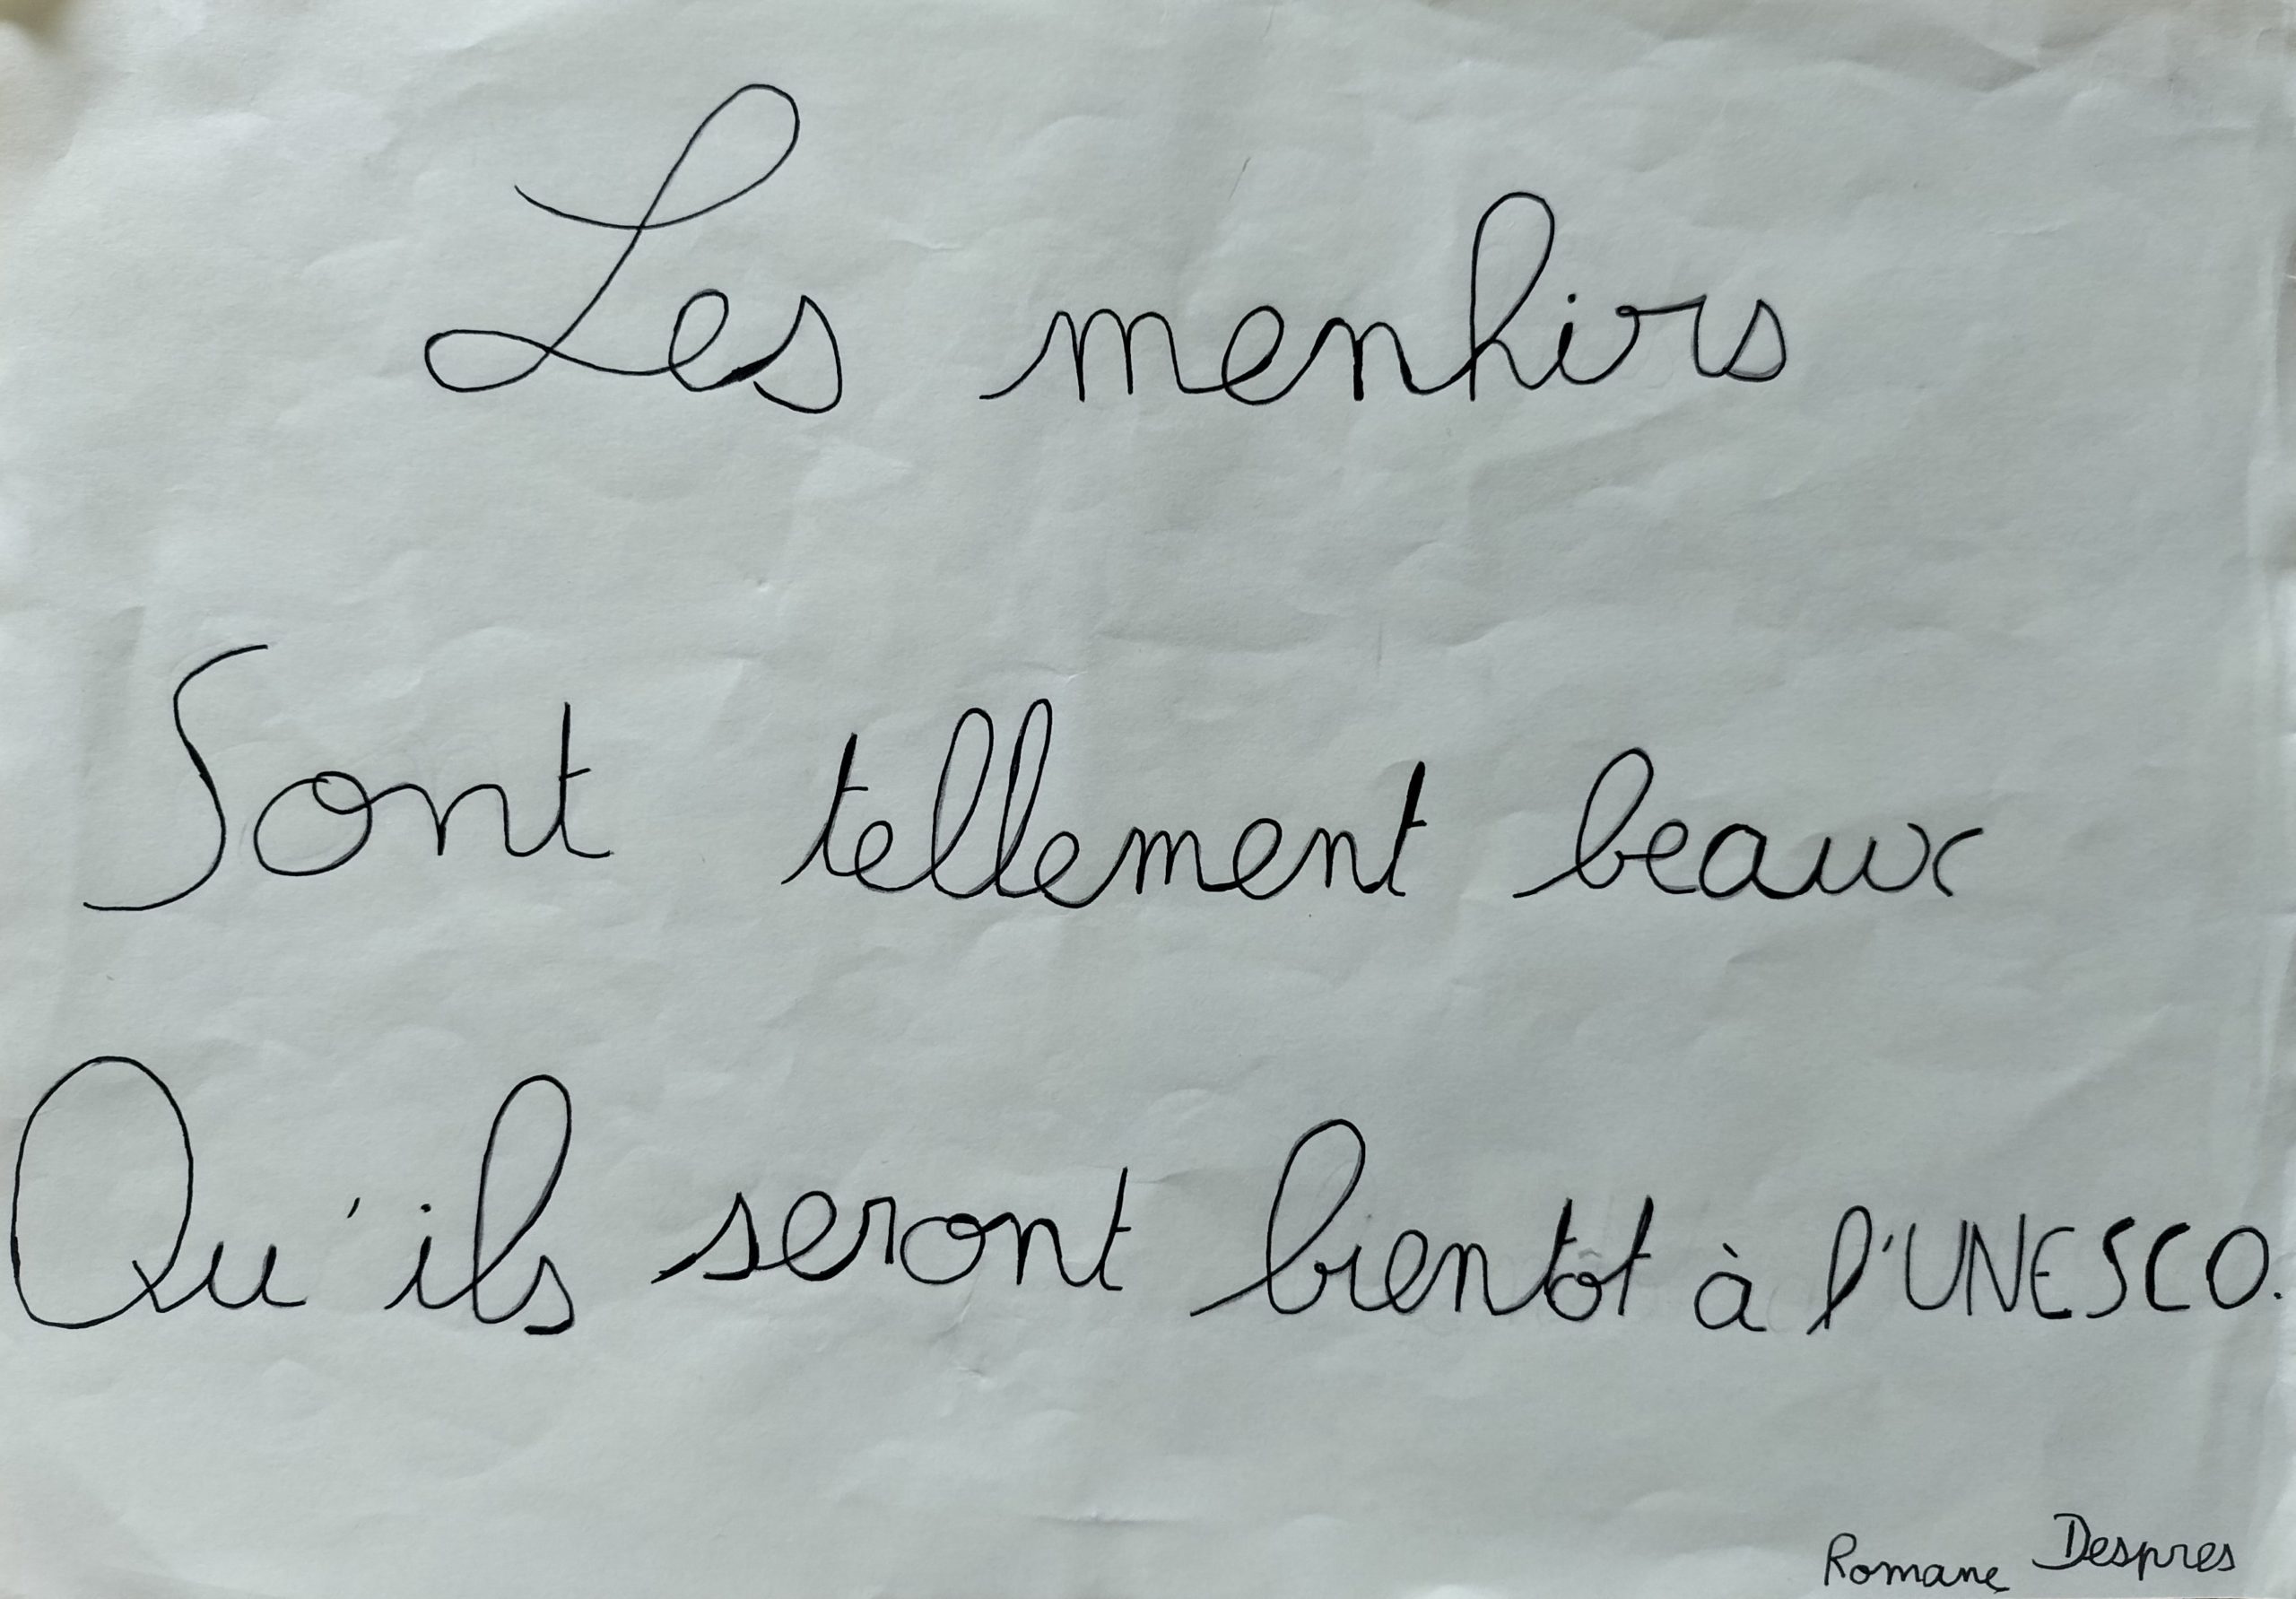 Les menhirs
Sont tellement beaux
Qu'ils seront bientôt à l'UNESCO.
Romane Despres